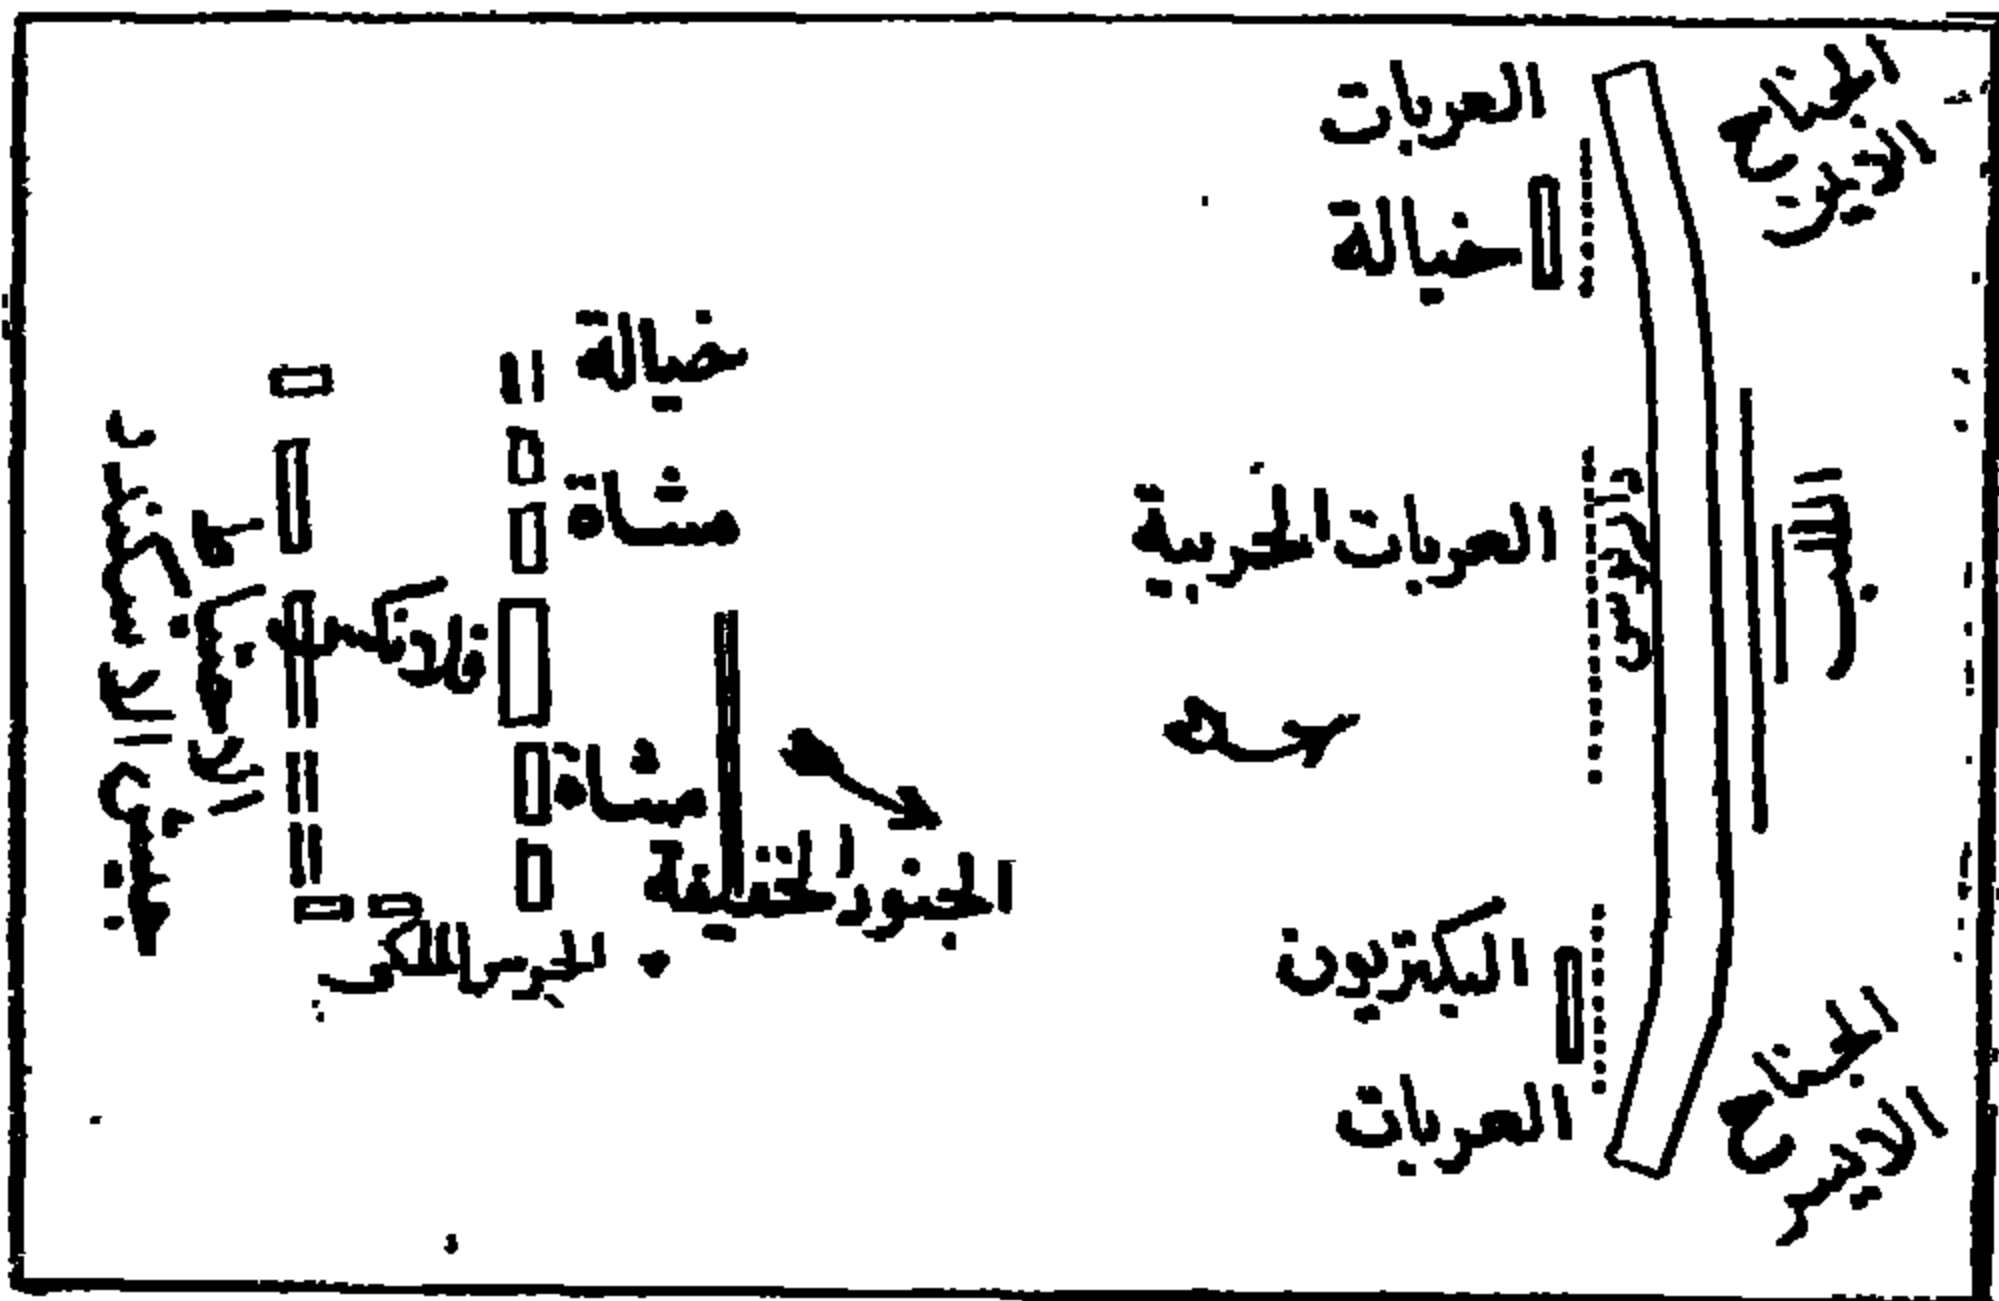 الجناح
الايمن
العربات
خيالة
المركز
داريوس
العربات الحربية
البكتريون
العربات
الجناح
الايسر
خيالة
مشاة
فلانكس
مشاة
الجنود الخفيفة
الحرس الملكي